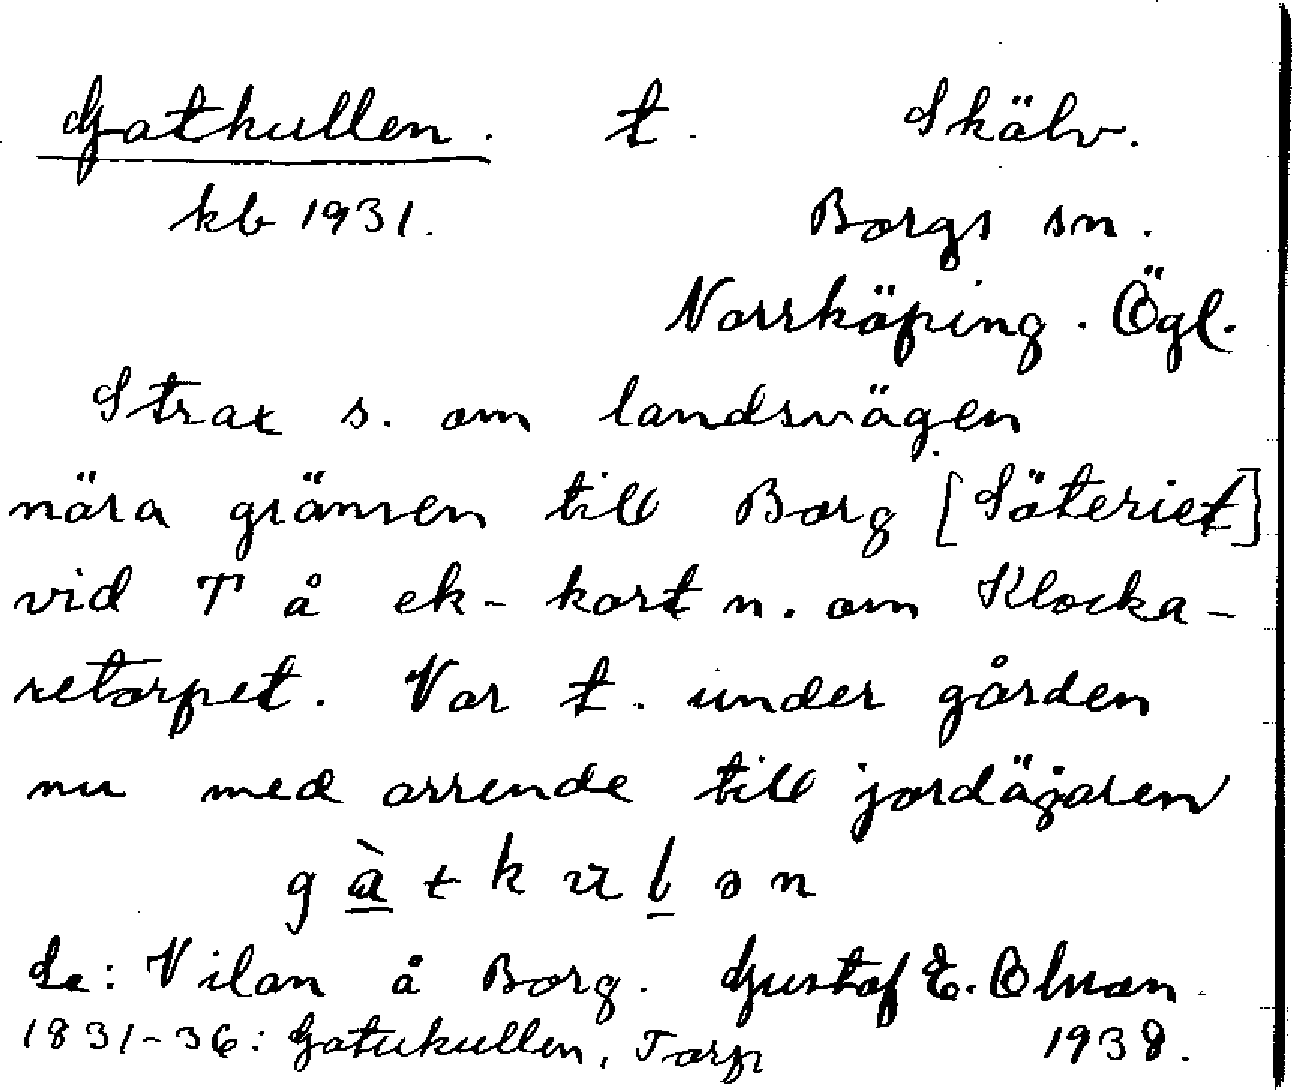 Gatkullen. t. Skälv.
kb 1931. Borgs sn.
Norrköping. Ögl.
Strax s. om landsvägen
nära gränsen till Borg [Säteriet]
vid T å ek- kart n. om Klocka-
retorpet. Var t. under gården
nu med arrende till jordägaren
g à t k u l ə n
Se: Vilan å Borg. Gustaf E. Olson
1831-36: Gatukullen, Torp 1938.